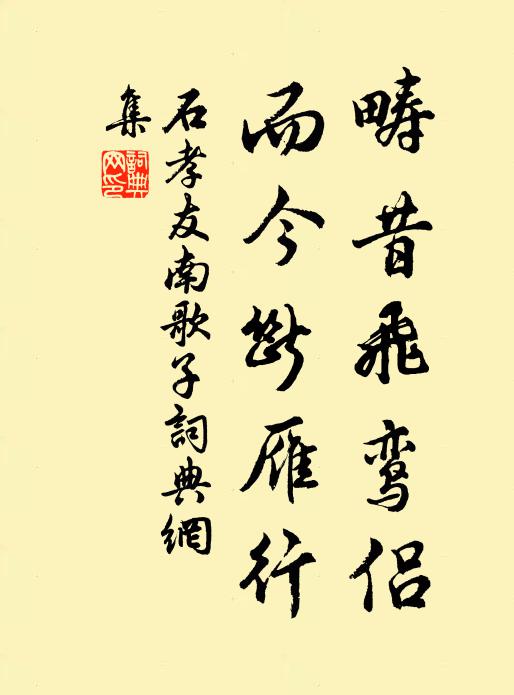 疇昔飛鸾侣
而今斷雁行
石孝友南歌子詞典網
集
詞典網印